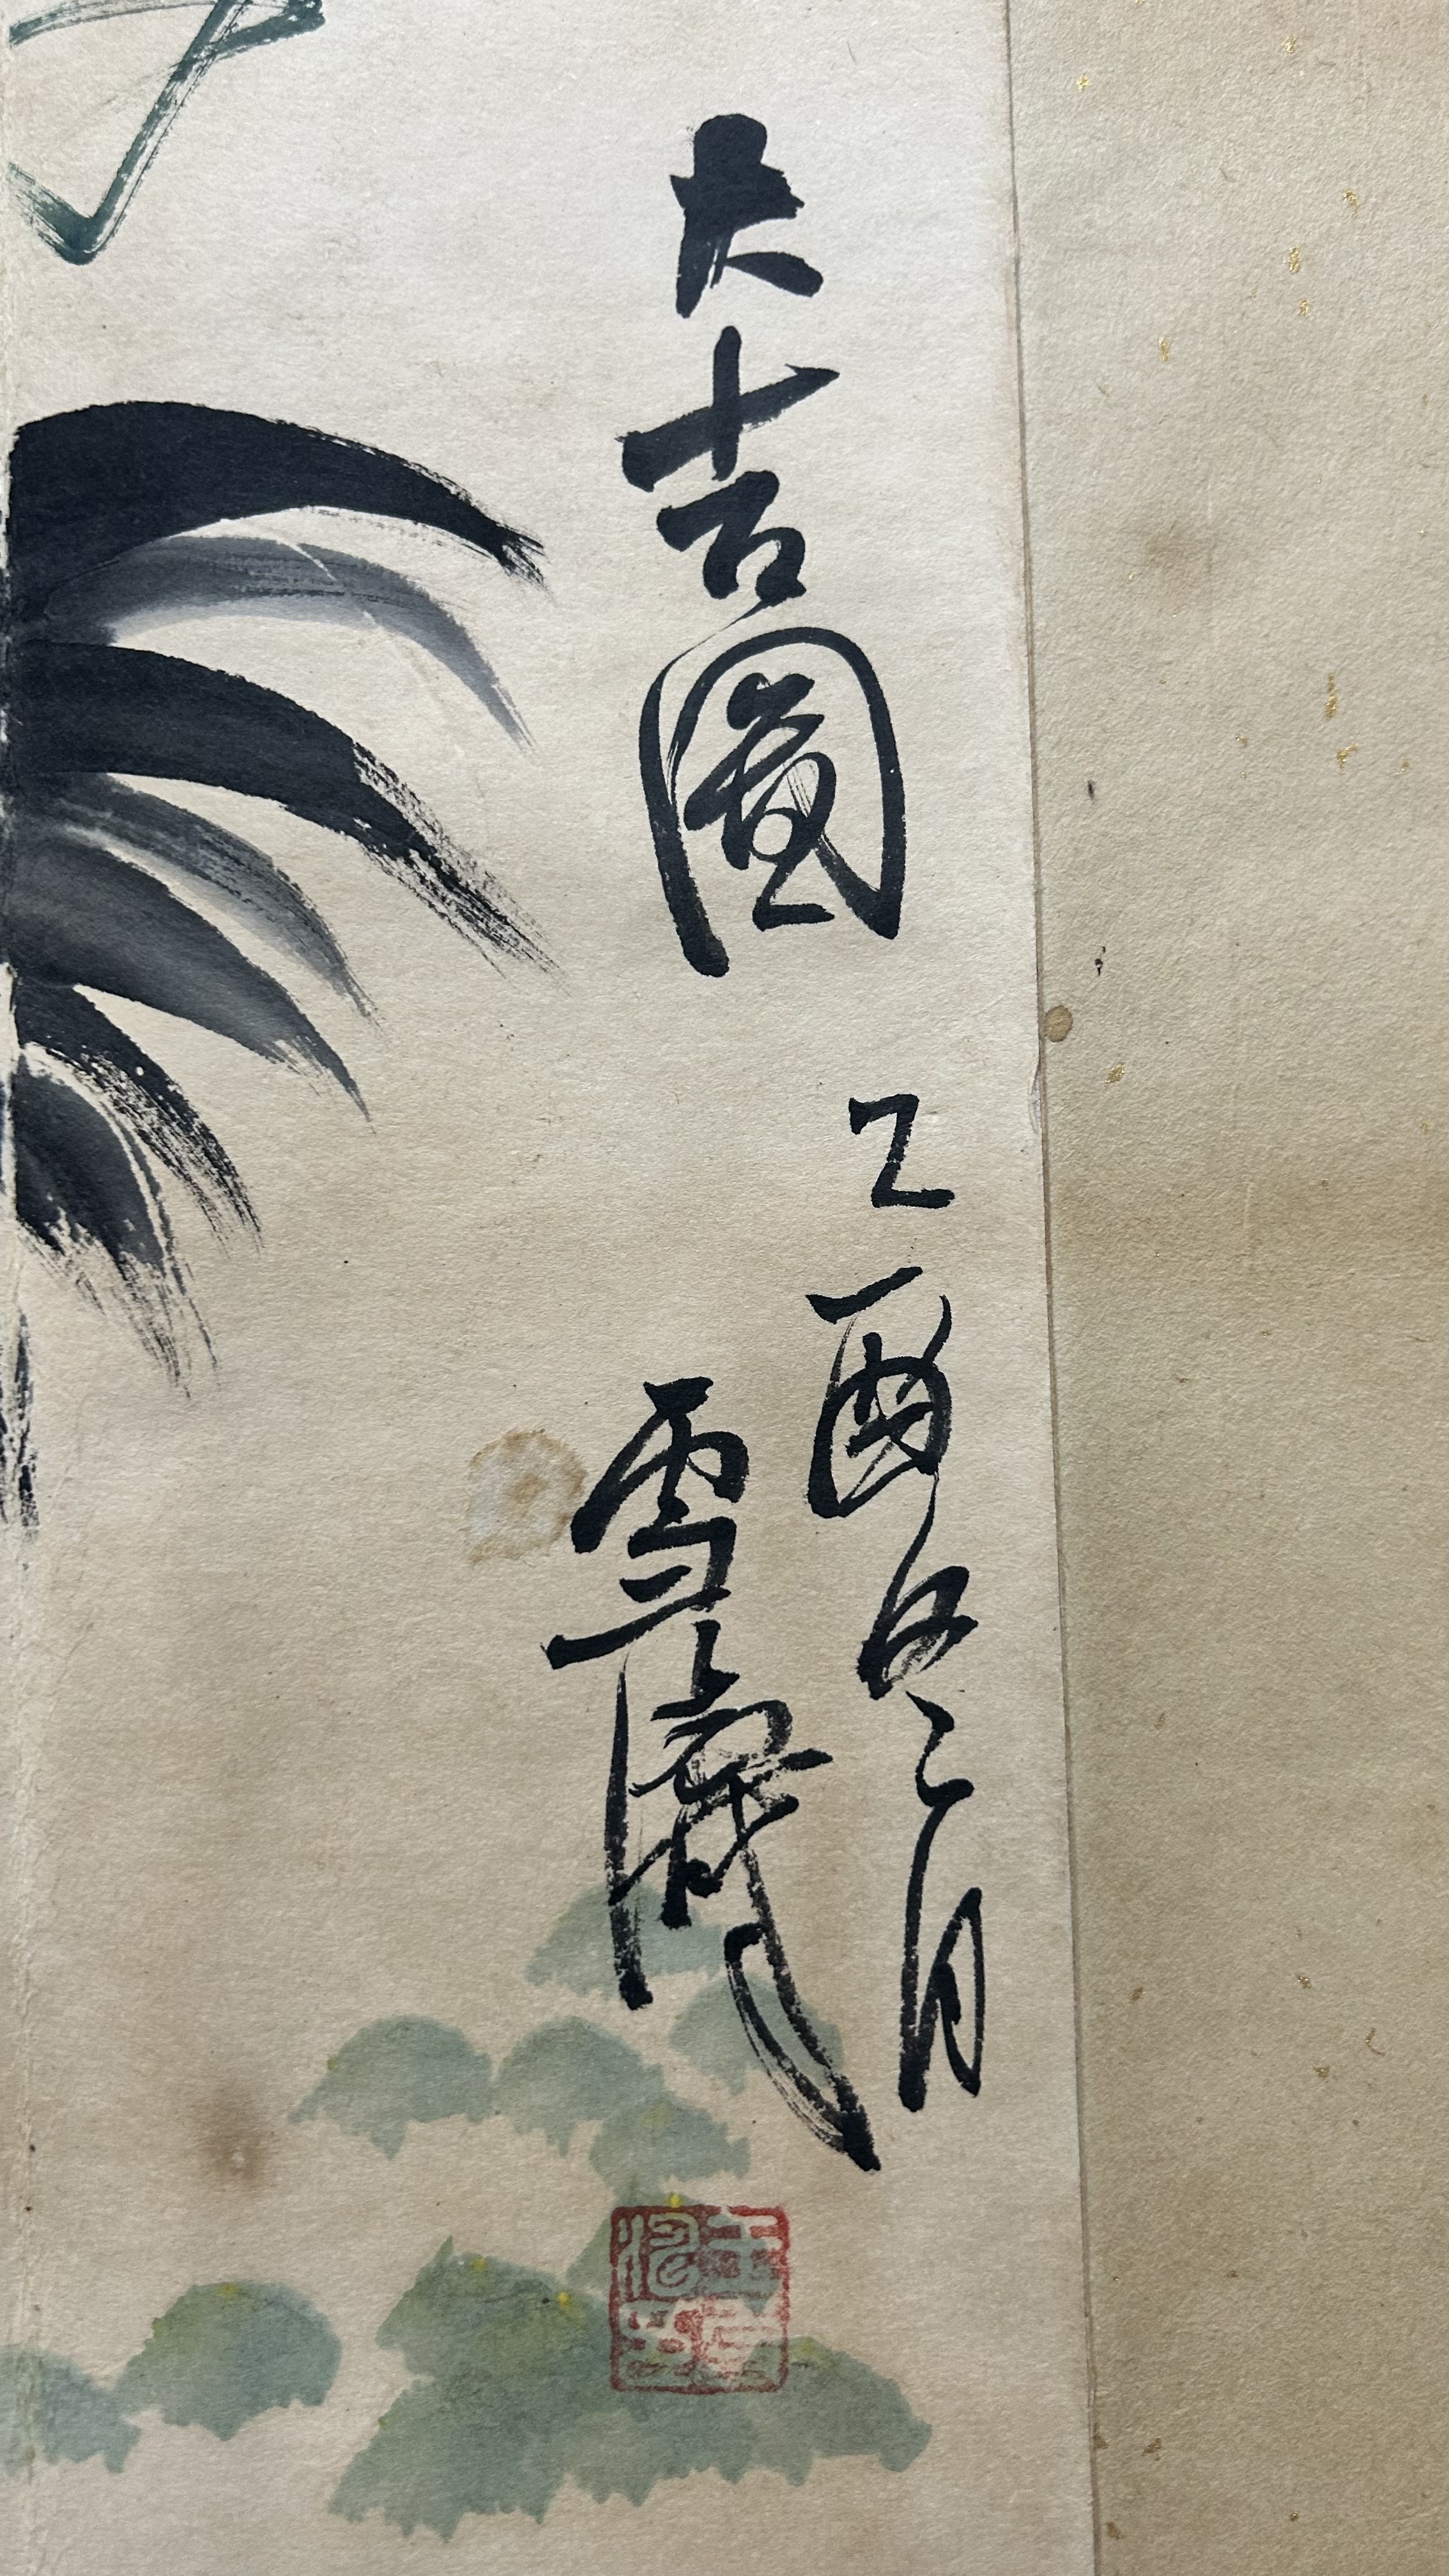 大吉圖
乙酉冬月
雪濤